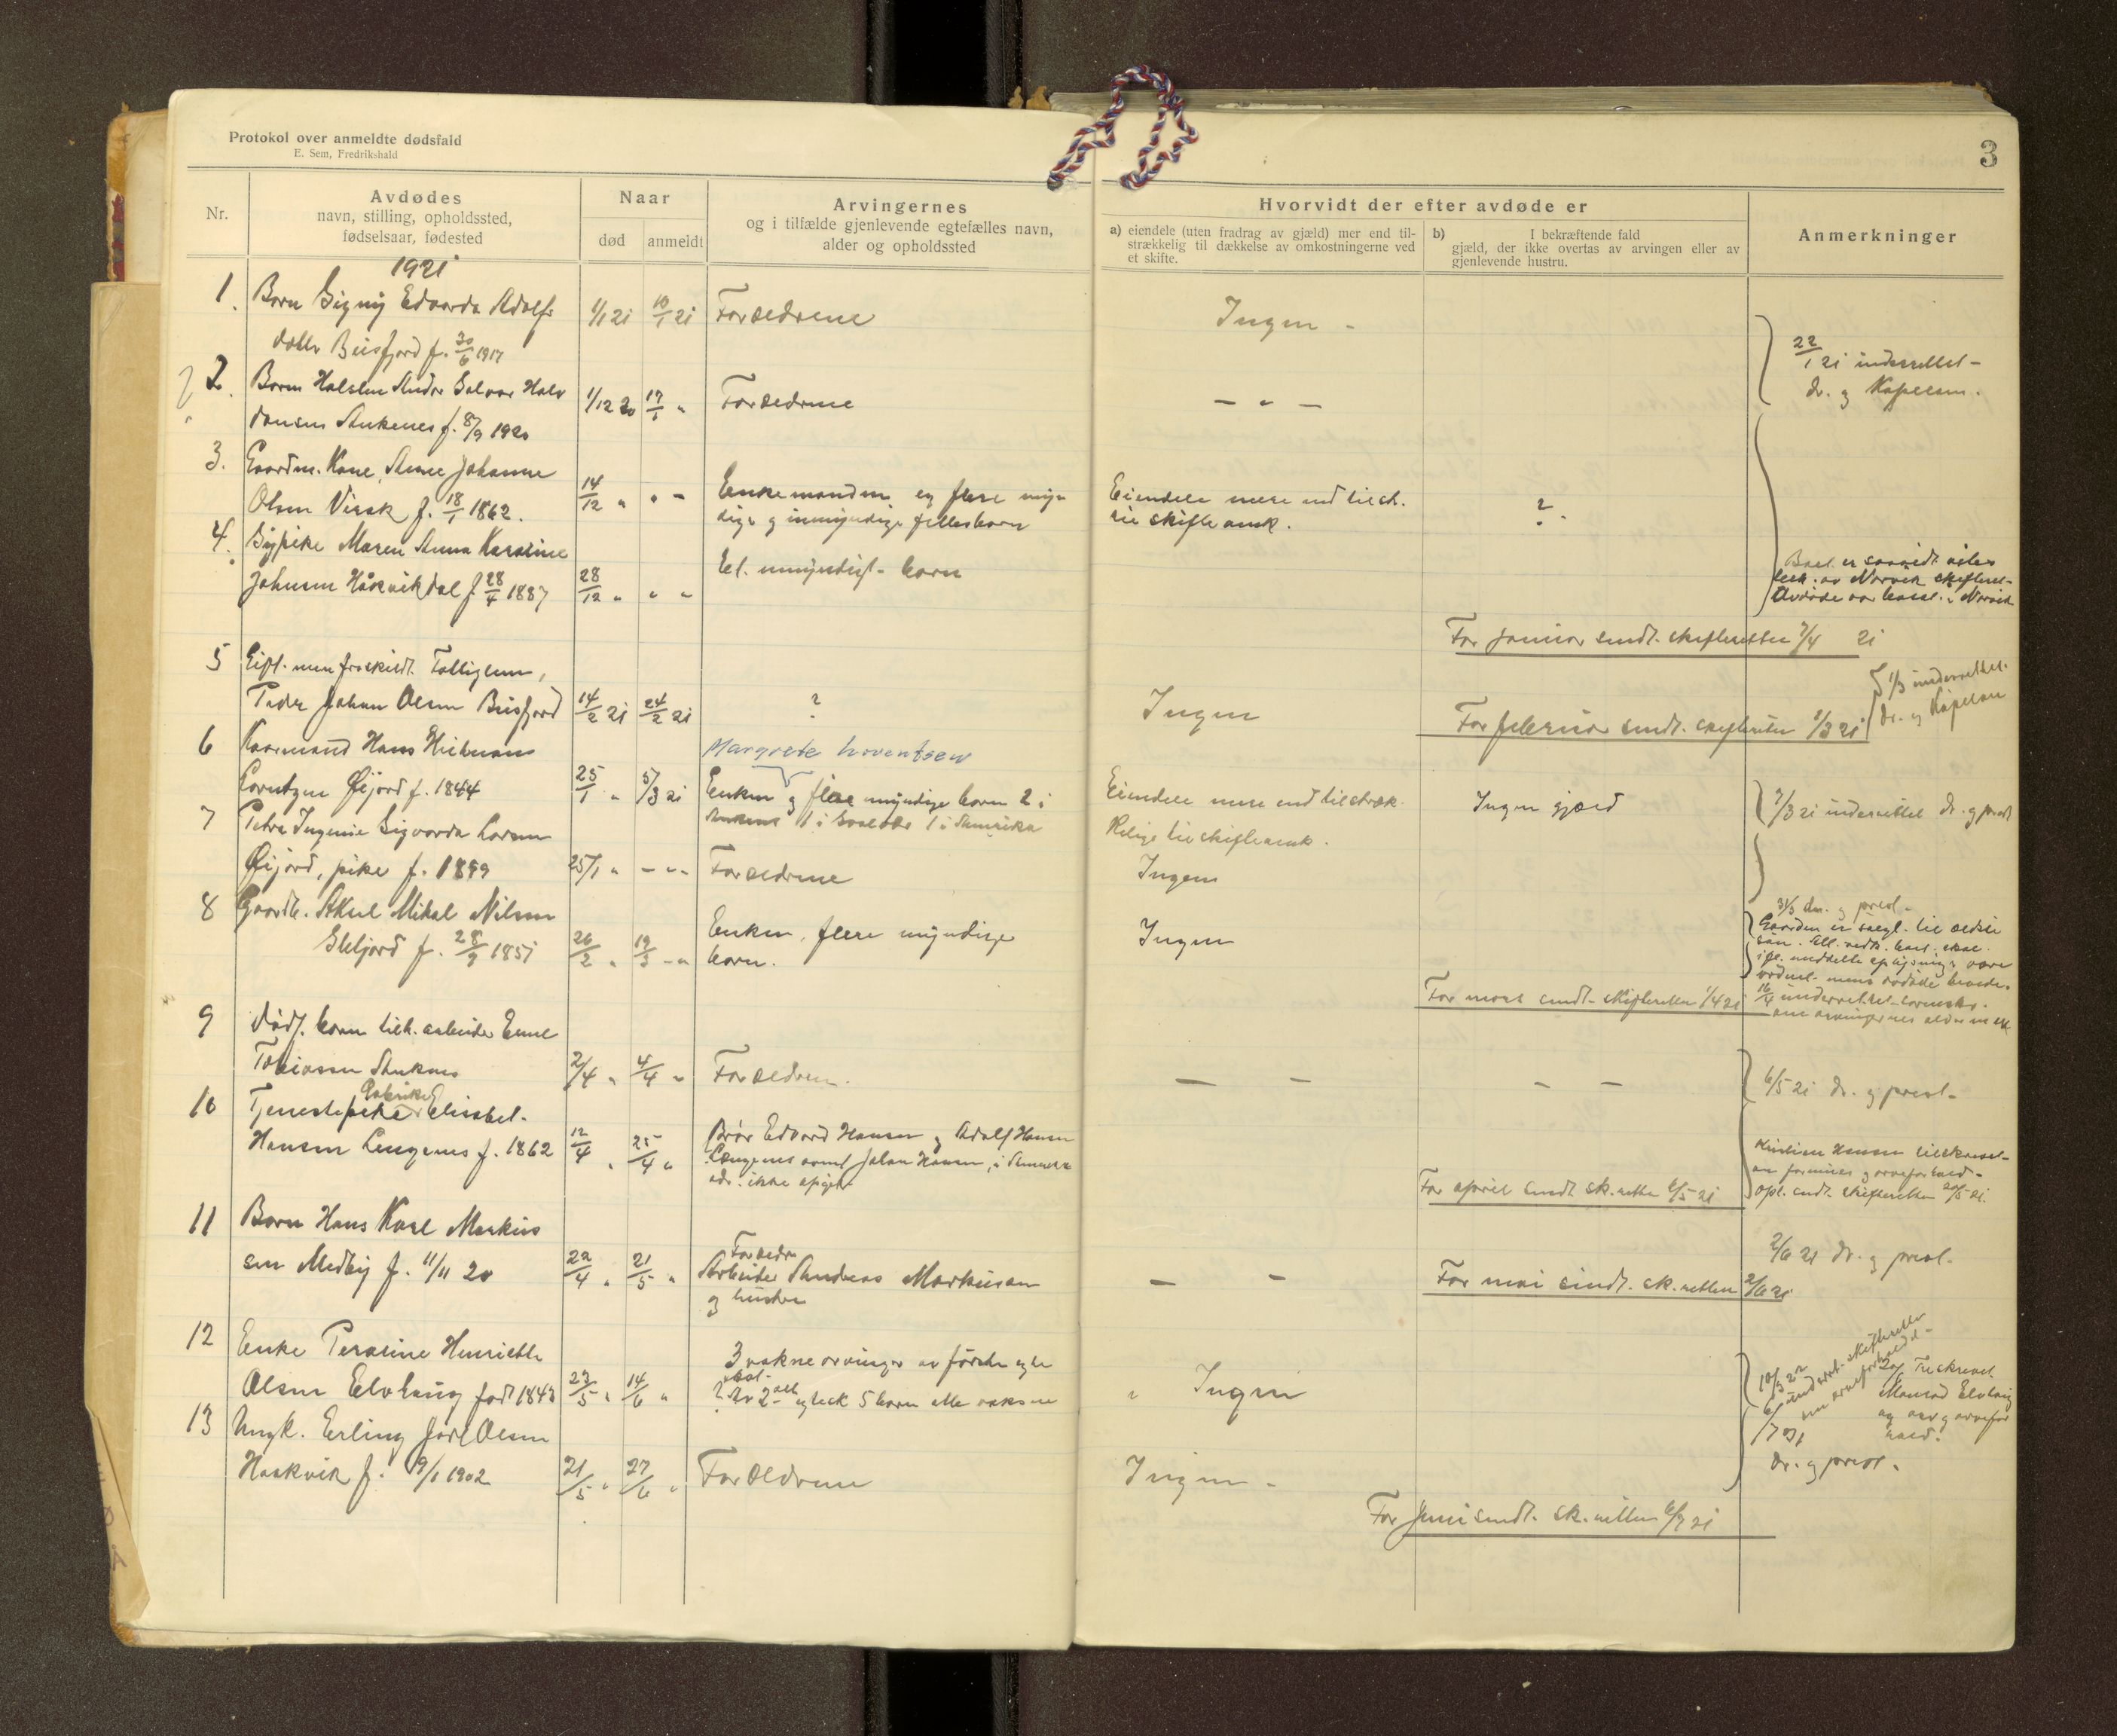 Protokol over anmeldte dødsfald
E. Sem, Fredrikshald
3
Nr.
Avdødes
navn, stilling, opholdssted,
fødselsaar, fødested
Naar
død
anmeldt
Arvingernes
og i tilfælde gjenlevende egtefælles navn,
alder og opholdssted
Hvorvidt der efter avdøde er
a) eiendele (uten fradrag av gjæld) mer end til-
strækkelig til dækkelse av omkostningerne ved
et skifte.
b) I bekræftende fald
gjæld, der ikke overtas av arvingen eller av
gjenlevende hustru.
Anmerkninger
1921
1. Barn Signy Edvarda Adolfs
datter Beisfjord f. 30/6 1917
1/1 21 10/1 21 Forældrene
Ingen -
22/1 21 underrettet
dr. og Kapellan.
2. Barn Halsten Andor Salvar Halv
dansen Ankenes f. 8/9 1920
1/12 20 17/1 " Forældrene
- " -
3. Gaardm. Kone, Anne Johanne
Olsen Virak f. 18/1 1862.
14/12 " " - Enkemanden og flere myn
dige og umyndige fellesbarn
Eiendele mere end tilstr.
til skifteomk.
?
4. Sypike Maren Anna Karoline
Johnsen Håkvikdal f. 28/4 1887
28/12 " " " Et umyndigt barn
Boet er
av Narvik skifteret
Avdøde var i Narvik
For januar sendt skifteretten 7/4 21
5 Peder Johan Olsen Beisfjord
14/2 21 24/2 21 ?
Ingen
For februar sendt skifteretten 1/3 21
1/3 underrettet
dr. og Kapellan
6 Kaarmand Hans Hilmar
Lorntzen Øijord f. 1844
25/1 " 5/3 21
Margrete Lorentsen
Enken og flere myndige barn 2 i
Ankenes 1 i 1 i Amerika
Eiendele mere end tilstræk
kelige til skifteomk.
Ingen gjæld
7/3 21 underrettet dr. og prest
7 Petra Ingenie Sigvarda Larsen
Øijord, pike f. 1899
25/1 " - " - Forældrene
Ingen
8 Gaardb. Aksel Mikal Nilsen
Skjord f. 28/9 1851
26/2 " 19/3 - " Enken, flere myndige
barn.
Ingen
31/3 dr. og prest
Gaarden er til ældste
søn.
16/4 underrettet
om arvingernes alder
For mars sendt skifteretten 1/4 21
9 Dødf. barn tilh. arbeider Emil
Tobiassen Ankenes
2/4 " 4/4 " Forældren.
- - - -
6/5 21 dr. og prest
10 Tjenestepike Elisabet
Hansen Lengenes f. 1862
12/4 " 25/4 " Brør Edvard Hansen og Adolf Hansen
Lengenes samt Johan Hansen, i Amerika
adr. ikke opgit
Kristian Hansen tilskrevet
om formues og arveforhold
opl. sendt skifteretten 20/5 21.
For april sendt sk.retten 6/5 21
11 Barn Hans Karl Markus
sen Medby f. 11/11 20
22/4 " 21/5 " Forældr
Arbeider Andreas Markussen
og hustru
- -
2/6 21 dr. og prest
For mai sendt. sk.retten 2/6 21
12 Enke Peroline Henriette
Olsen Elvhaug født 1843
23/5 " 14/6 " 3 voksne arvinger av første egte
? Av 2 5 barn alle voksne
" Ingen
10/3 22 underret. skifteretten
om arveforhold
20/6 Tilskrevet
Elvhaug
og arvefor
hold.
13 Ungk. Erling Jarl Olsen
Haakvik f. 9/1 1902
21/5 " 27/6 " Forældrene
Ingen -
6/7 21
dr. og prest.
For Juni sendt. sk.retten 6/7 21